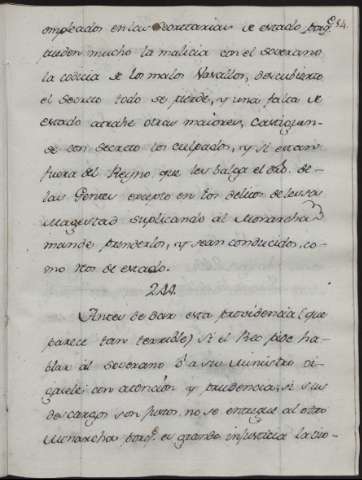 84.
empleados en las Secretarias de estado porq.
pueden mucho la malicia con el soverano
la codicia de los malos Vasallos, descubierto
el secreto todo se pierde, y una falta de
estado atrahe otras maiores, castiguen-
se con secreto los culpados, y si estan
fuera del Reyno que les balga el dro. de
las Gentes excepto en los delitos de lessa
Magestad suplicando al Monarcha
mande prenderlos, y sean conducidos, co-
mo reos de estado.
244.
Antes de dar esta providencia (que
parece tan terrible) si el Reo pide ha-
blar al soverano ó a su Ministro oi-
gasele con atencion y prudencia, si sus
descargos son justos, no se entregue al otro
Monarcha porq. es grande injusticia la